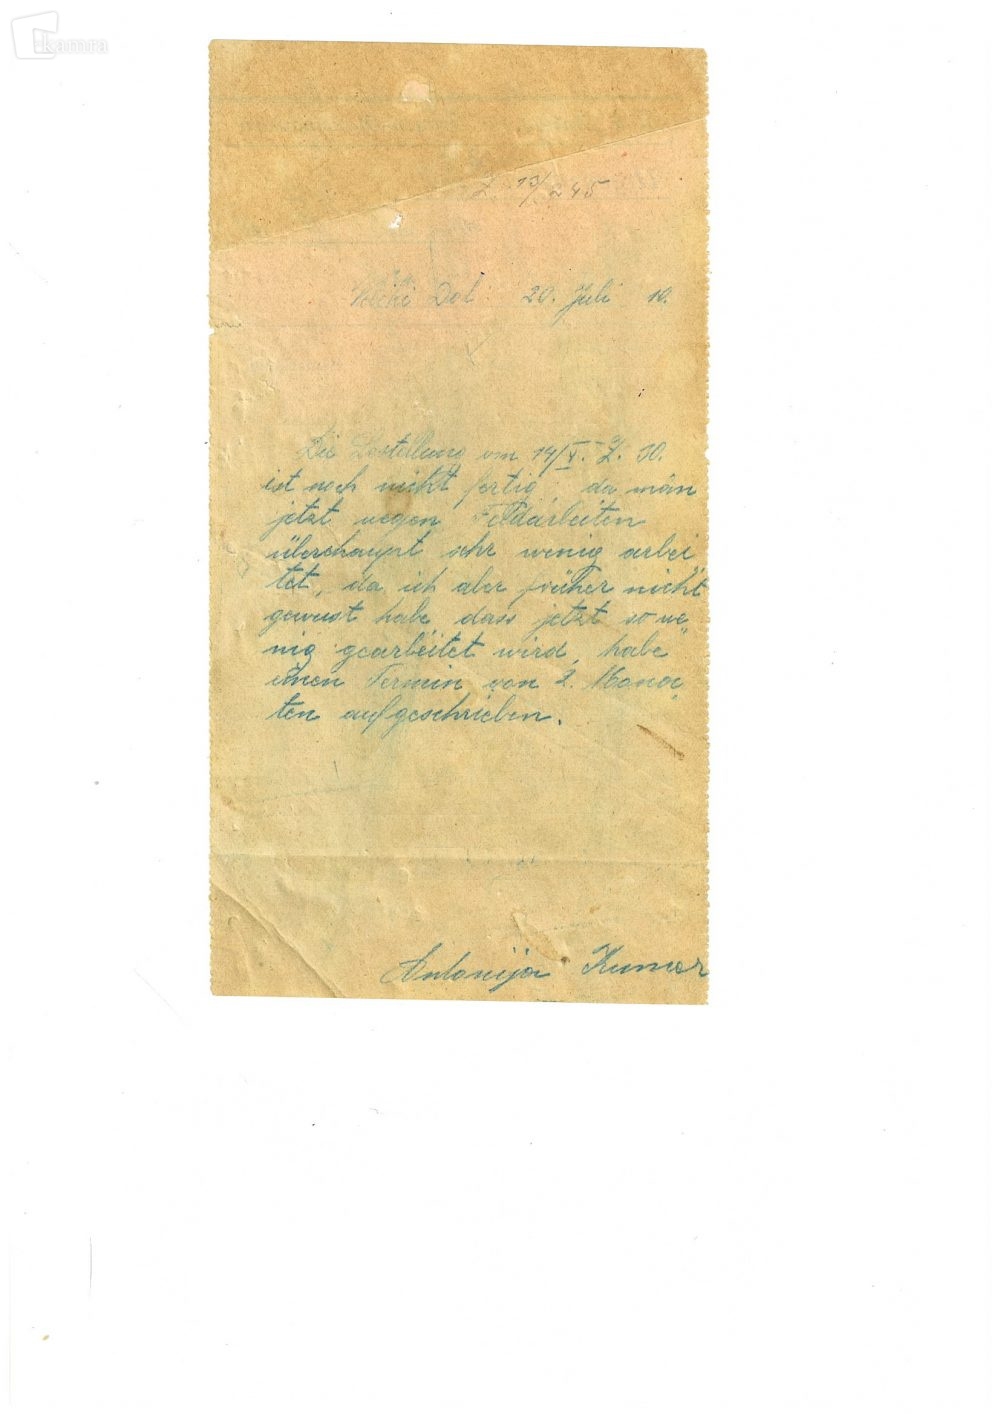 kamra
Z. 13/245
Veliki Dol 20. Juli 10.
Die Bestellung vom 14/V. Z. 30.
ist noch nicht fertig, da man
jetzt wegen Feldarbeiten
überchaupt sehr wenig arbei
tet, da ich aber früher nicht
gewust habe, dass jetzt so we„
nig gearbeitet wird, habe
einen Termin von 2. Mona„
ten aufgeschrieben.
Antonija Kumar